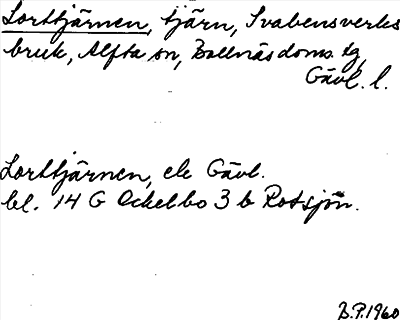 Lorttjärnen, tjärn, Svabensverks
bruk, Alfta sn, Bollnäs doms. tg,
Gävl. l.
Lorttjärnen, ek Gävl.
bl. 14 G Ockelbo 3 b Rotsjön.
B.P. 1960